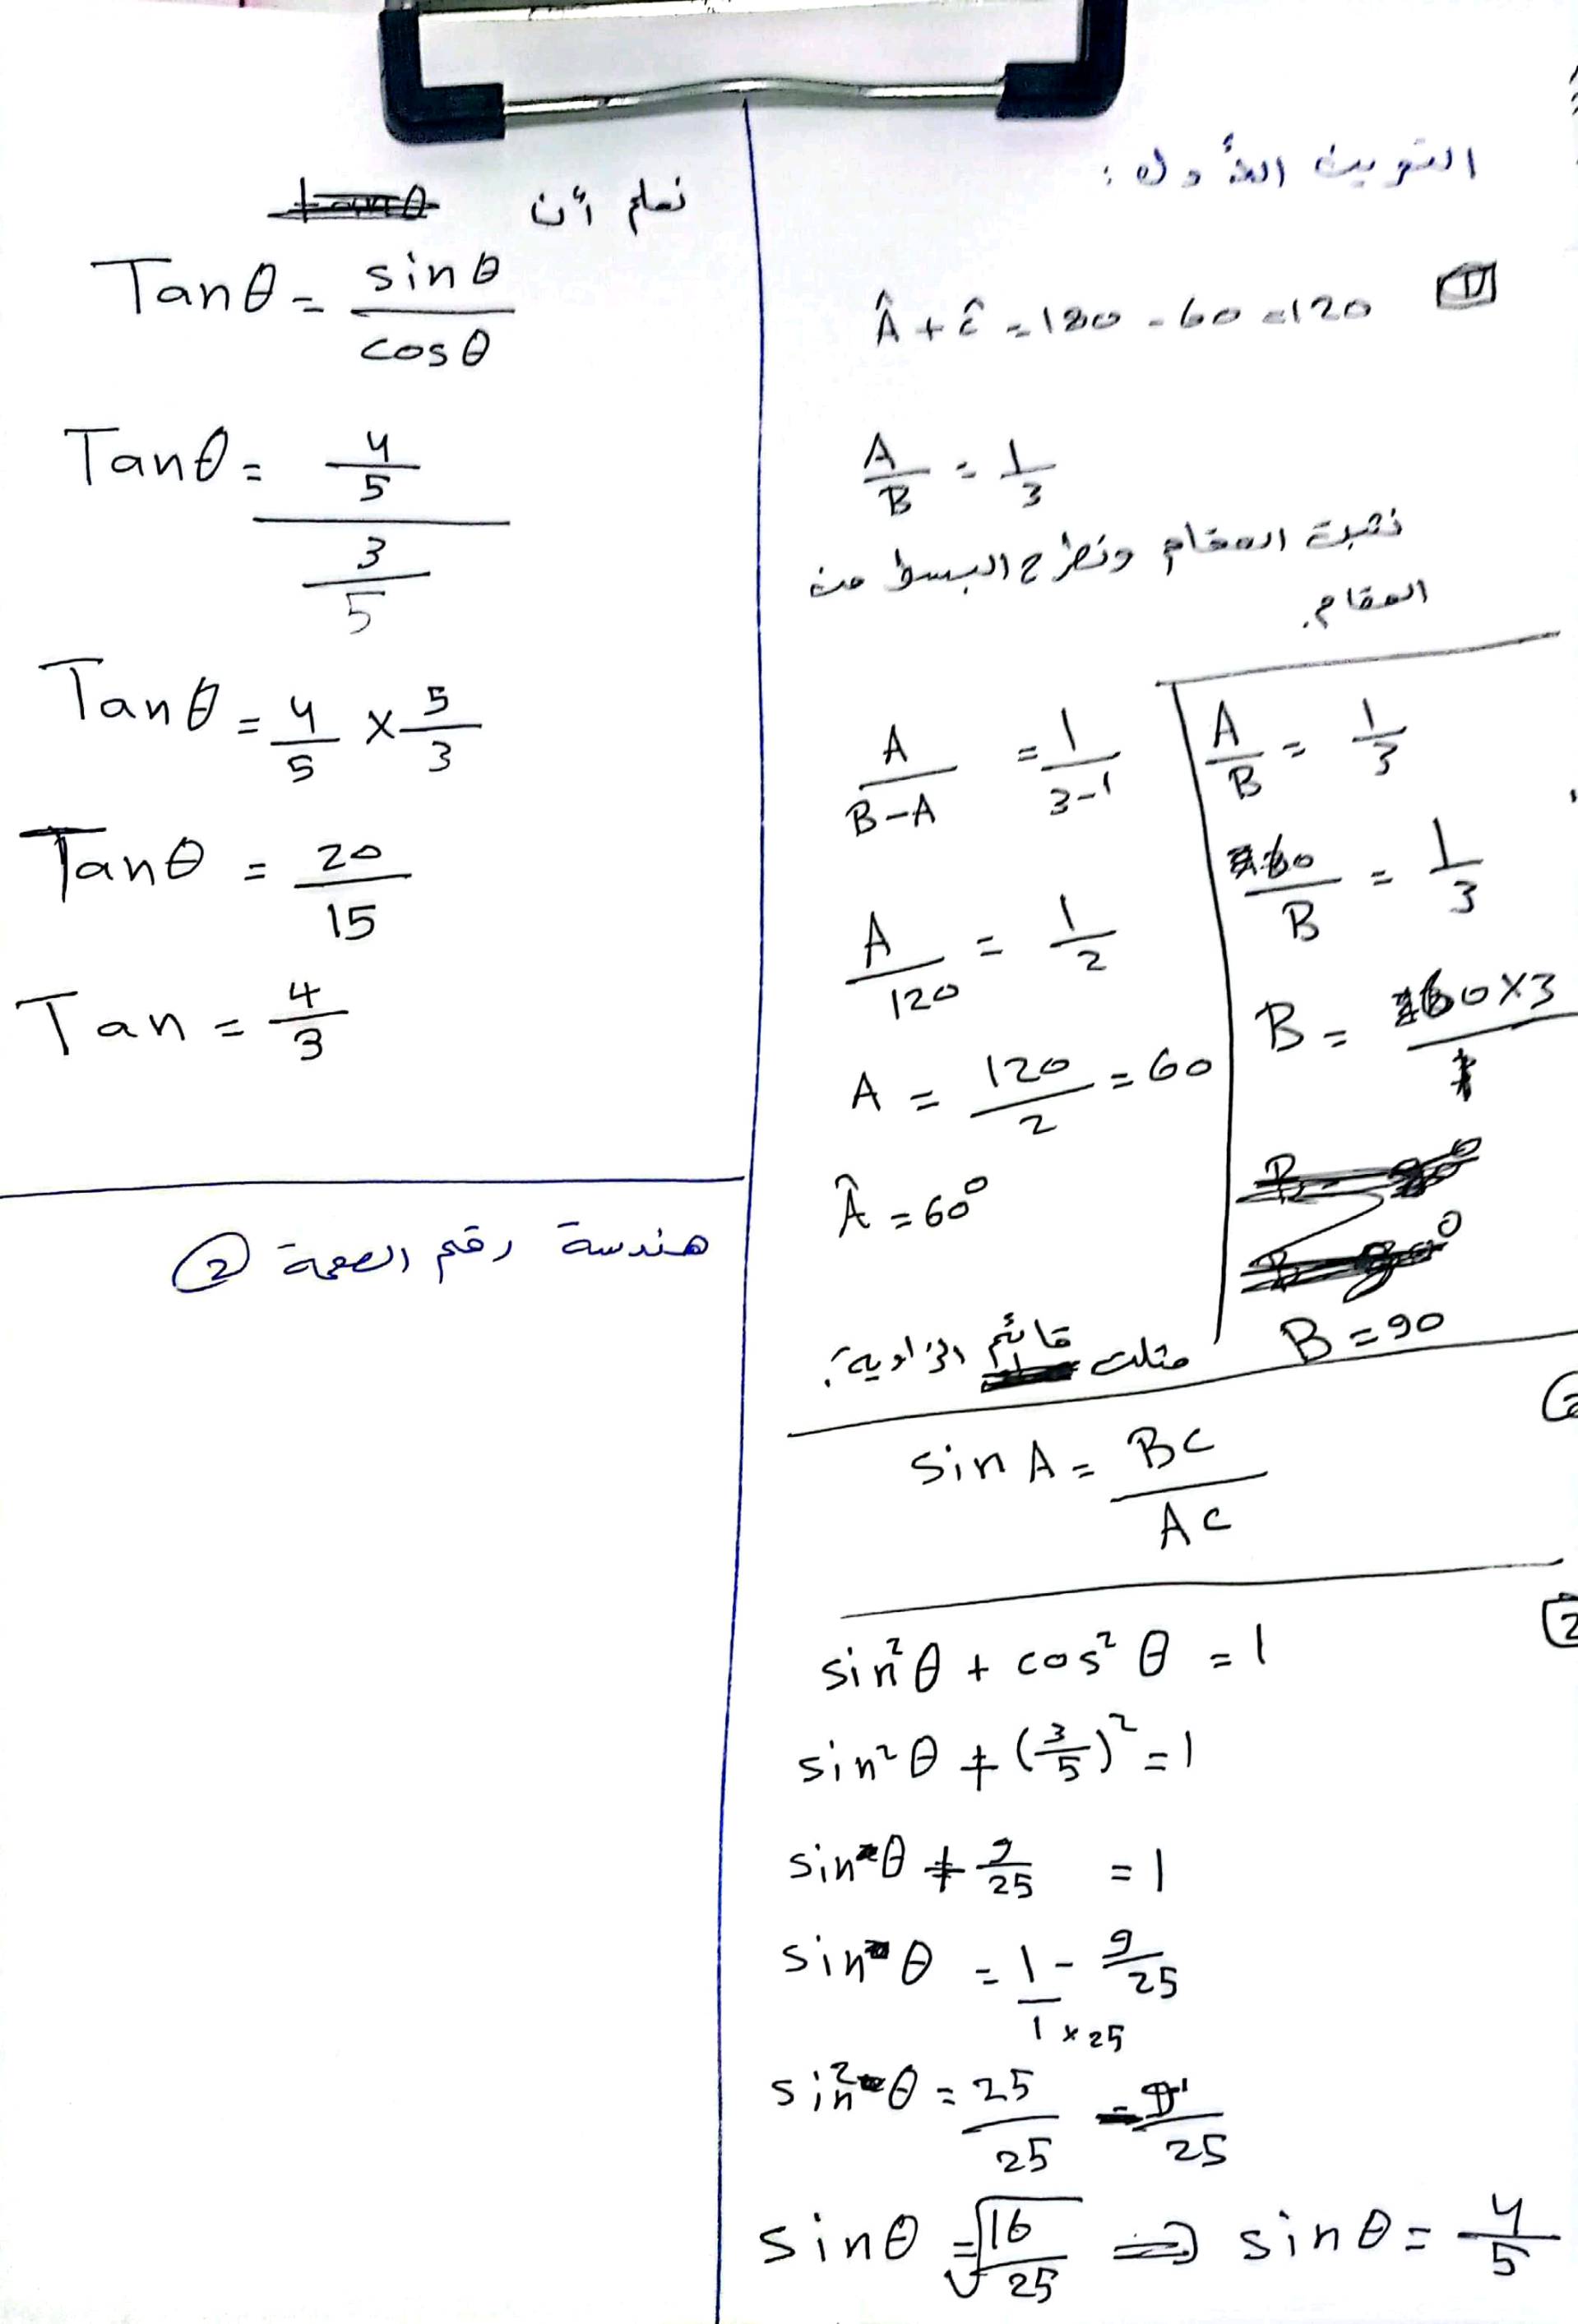 التمرين الأول:
1 Â + Ĉ = 180 - 60 = 120
A/B = 1/3
نثبت المقام ونطرح البسط من
المقام.
A/(B-A) = 1/(3-1)
A/120 = 1/2
A = 120/2 = 60
Â = 60°
مثلث قائم الزاوية:
A/B = 1/3
60/B = 1/3
B = (60×3)/1
B = 90
sin A = BC/AC
2
sin²θ + cos²θ = 1
sin²θ + (3/5)² = 1
sin²θ + 9/25 = 1
sin²θ = 1/1×25 - 9/25
sin²θ = 25/25 - 9/25
sinθ = √16/25 ⇒ sinθ = 4/5
نعلم أن
Tanθ = sinθ/cosθ
Tanθ = (4/5)/(3/5)
Tanθ = 4/5 × 5/3
Tanθ = 20/15
Tan = 4/3
هندسة رقم الصفحة 2